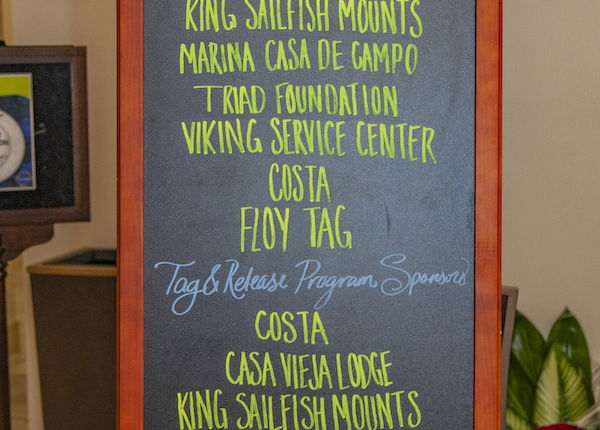 KING SAILFISH MOUNTS
MARINA CASA DE CAMPO
TRIAD FOUNDATION
VIKING SERVICE CENTER
COSTA
FLOY TAG
Tag & Release Program Sponsors
COSTA
CASA VIEJA LODGE
KING SAILFISH MOUNTS